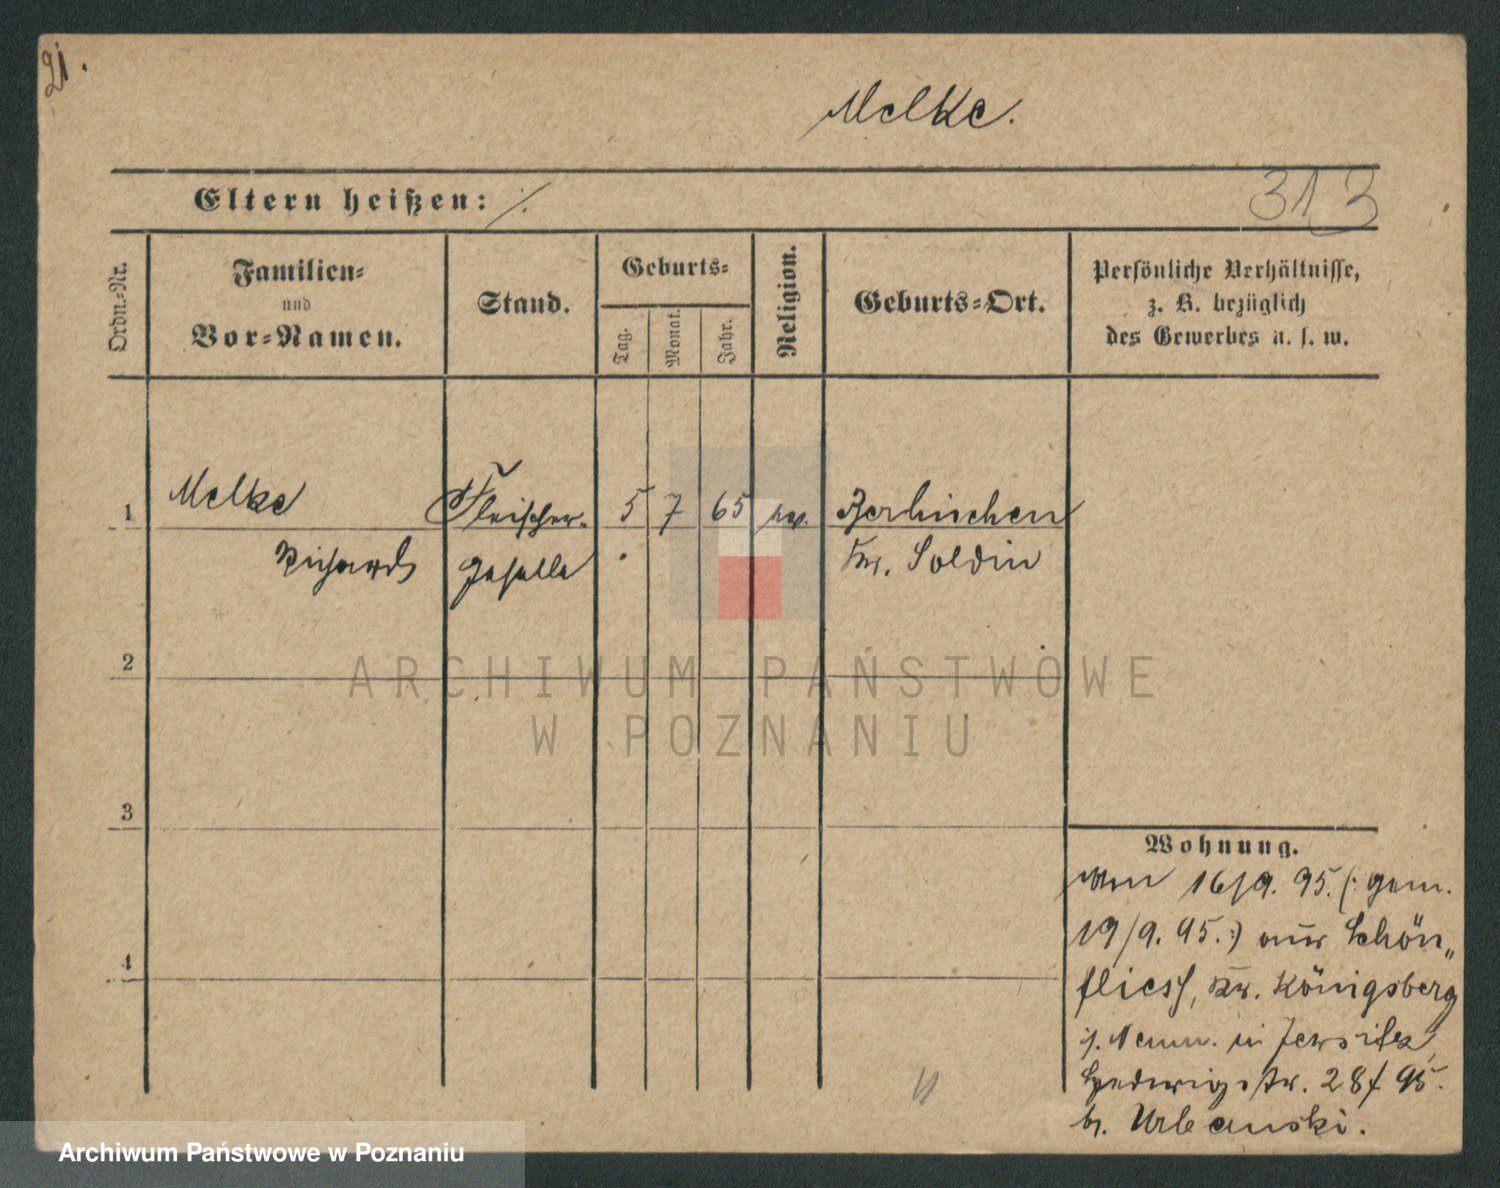 21.
Melke.
Eltern heißen: ./.
313
Ordn.=Nr.
Familien=
und
Vor=Namen.
Stand.
Geburts=
Tag.
Monat.
Jahr.
Religion.
Geburts=Ort.
Persönliche Verhältnisse,
z. B. bezüglich
des Gewerbes u. s. w.
1 Melke Fleischer- 5 7 65 ev. Berlinchen
Richard geselle Kr. Soldin
2
3
4
Wohnung.
16/9. 95. (: gem.
19/9. 95. :) aus Schön„
fliess, Kr. Königsberg
in Jersitz,
Hedwigstr. 28 95.
b. Urbanski.
ARCHIWUM PAŃSTWOWE
W POZNANIU
Archiwum Państwowe w Poznaniu